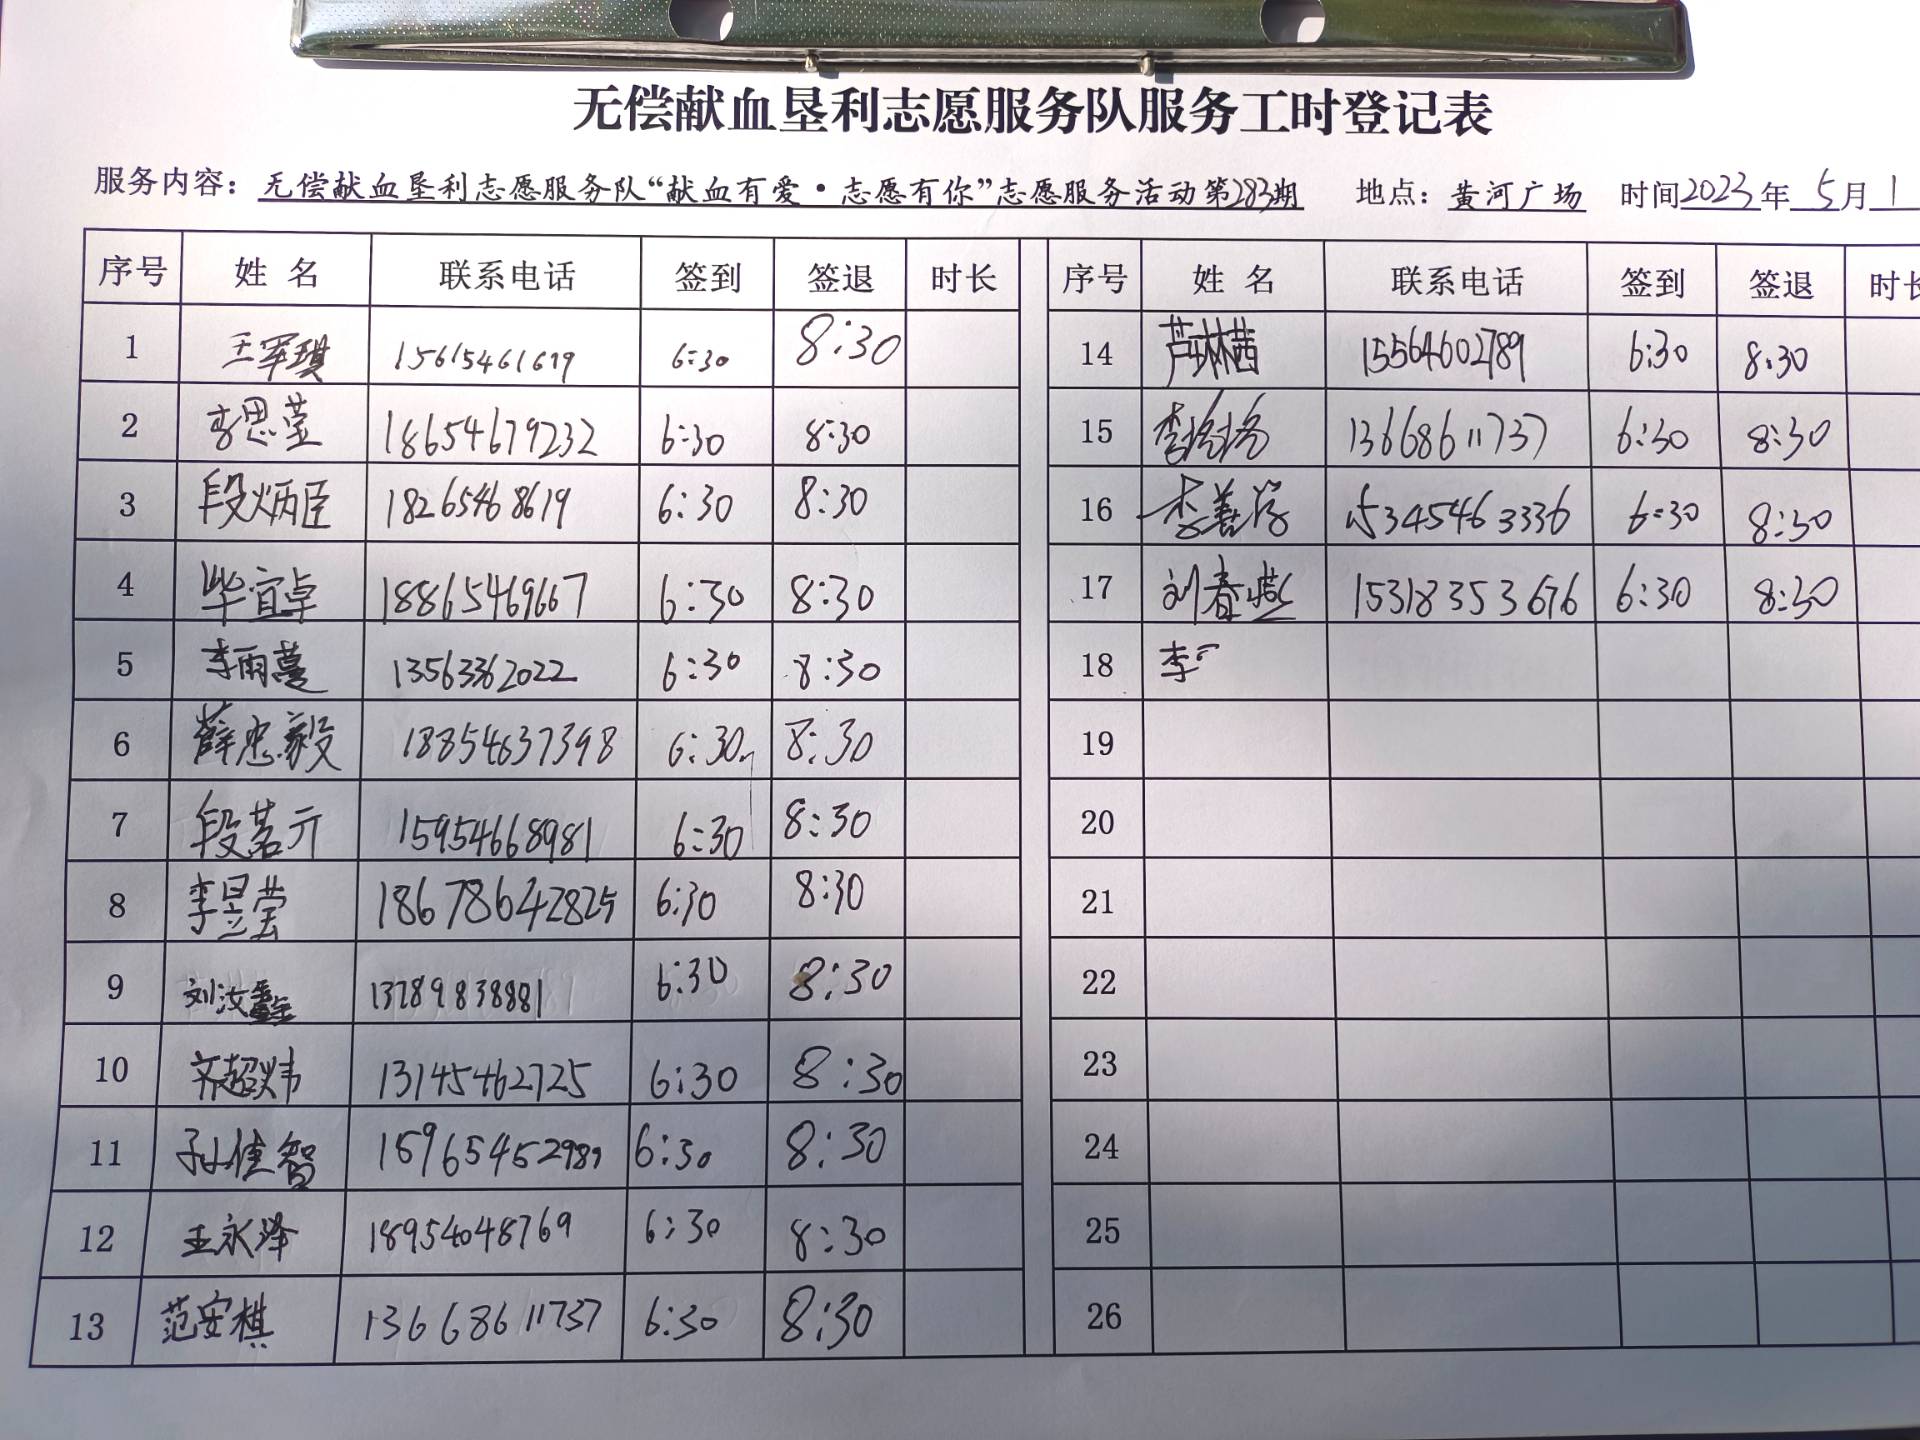 无偿献血垦利志愿服务队服务工时登记表
服务内容：无偿献血垦利志愿服务队“献血有爱·志愿有你”志愿服务活动第283期 地点：黄河广场 时间2023年5月1
序号 姓名 联系电话 签到 签退 时长 序号 姓名 联系电话 签到 签退 时长
1 王军琪 15615461679 6:30 8:30
2 李思莹 18654679232 6:30 8:30
3 段炳臣 18265468619 6:30 8:30
4 毕宜卓 18865469667 6:30 8:30
5 李雨蔓 13563362022 6:30 8:30
6 薛忠毅 18854637398 6:30 8:30
7 段茗亓 15954668981 6:30 8:30
8 李昱莹 18678642825 6:30 8:30
9 刘汝鑫 13789838881 6:30 8:30
10 齐超炜 13145462725 6:30 8:30
11 孙佳智 15965452989 6:30 8:30
12 王永泽 18954048769 6:30 8:30
13 范安棋 13668611737 6:30 8:30
14 芦琳茜 15564602789 6:30 8:30
15 李 13668611737 6:30 8:30
16 李善 15345463336 6:30 8:30
17 刘春燕 15318353676 6:30 8:30
18 李
19
20
21
22
23
24
25
26